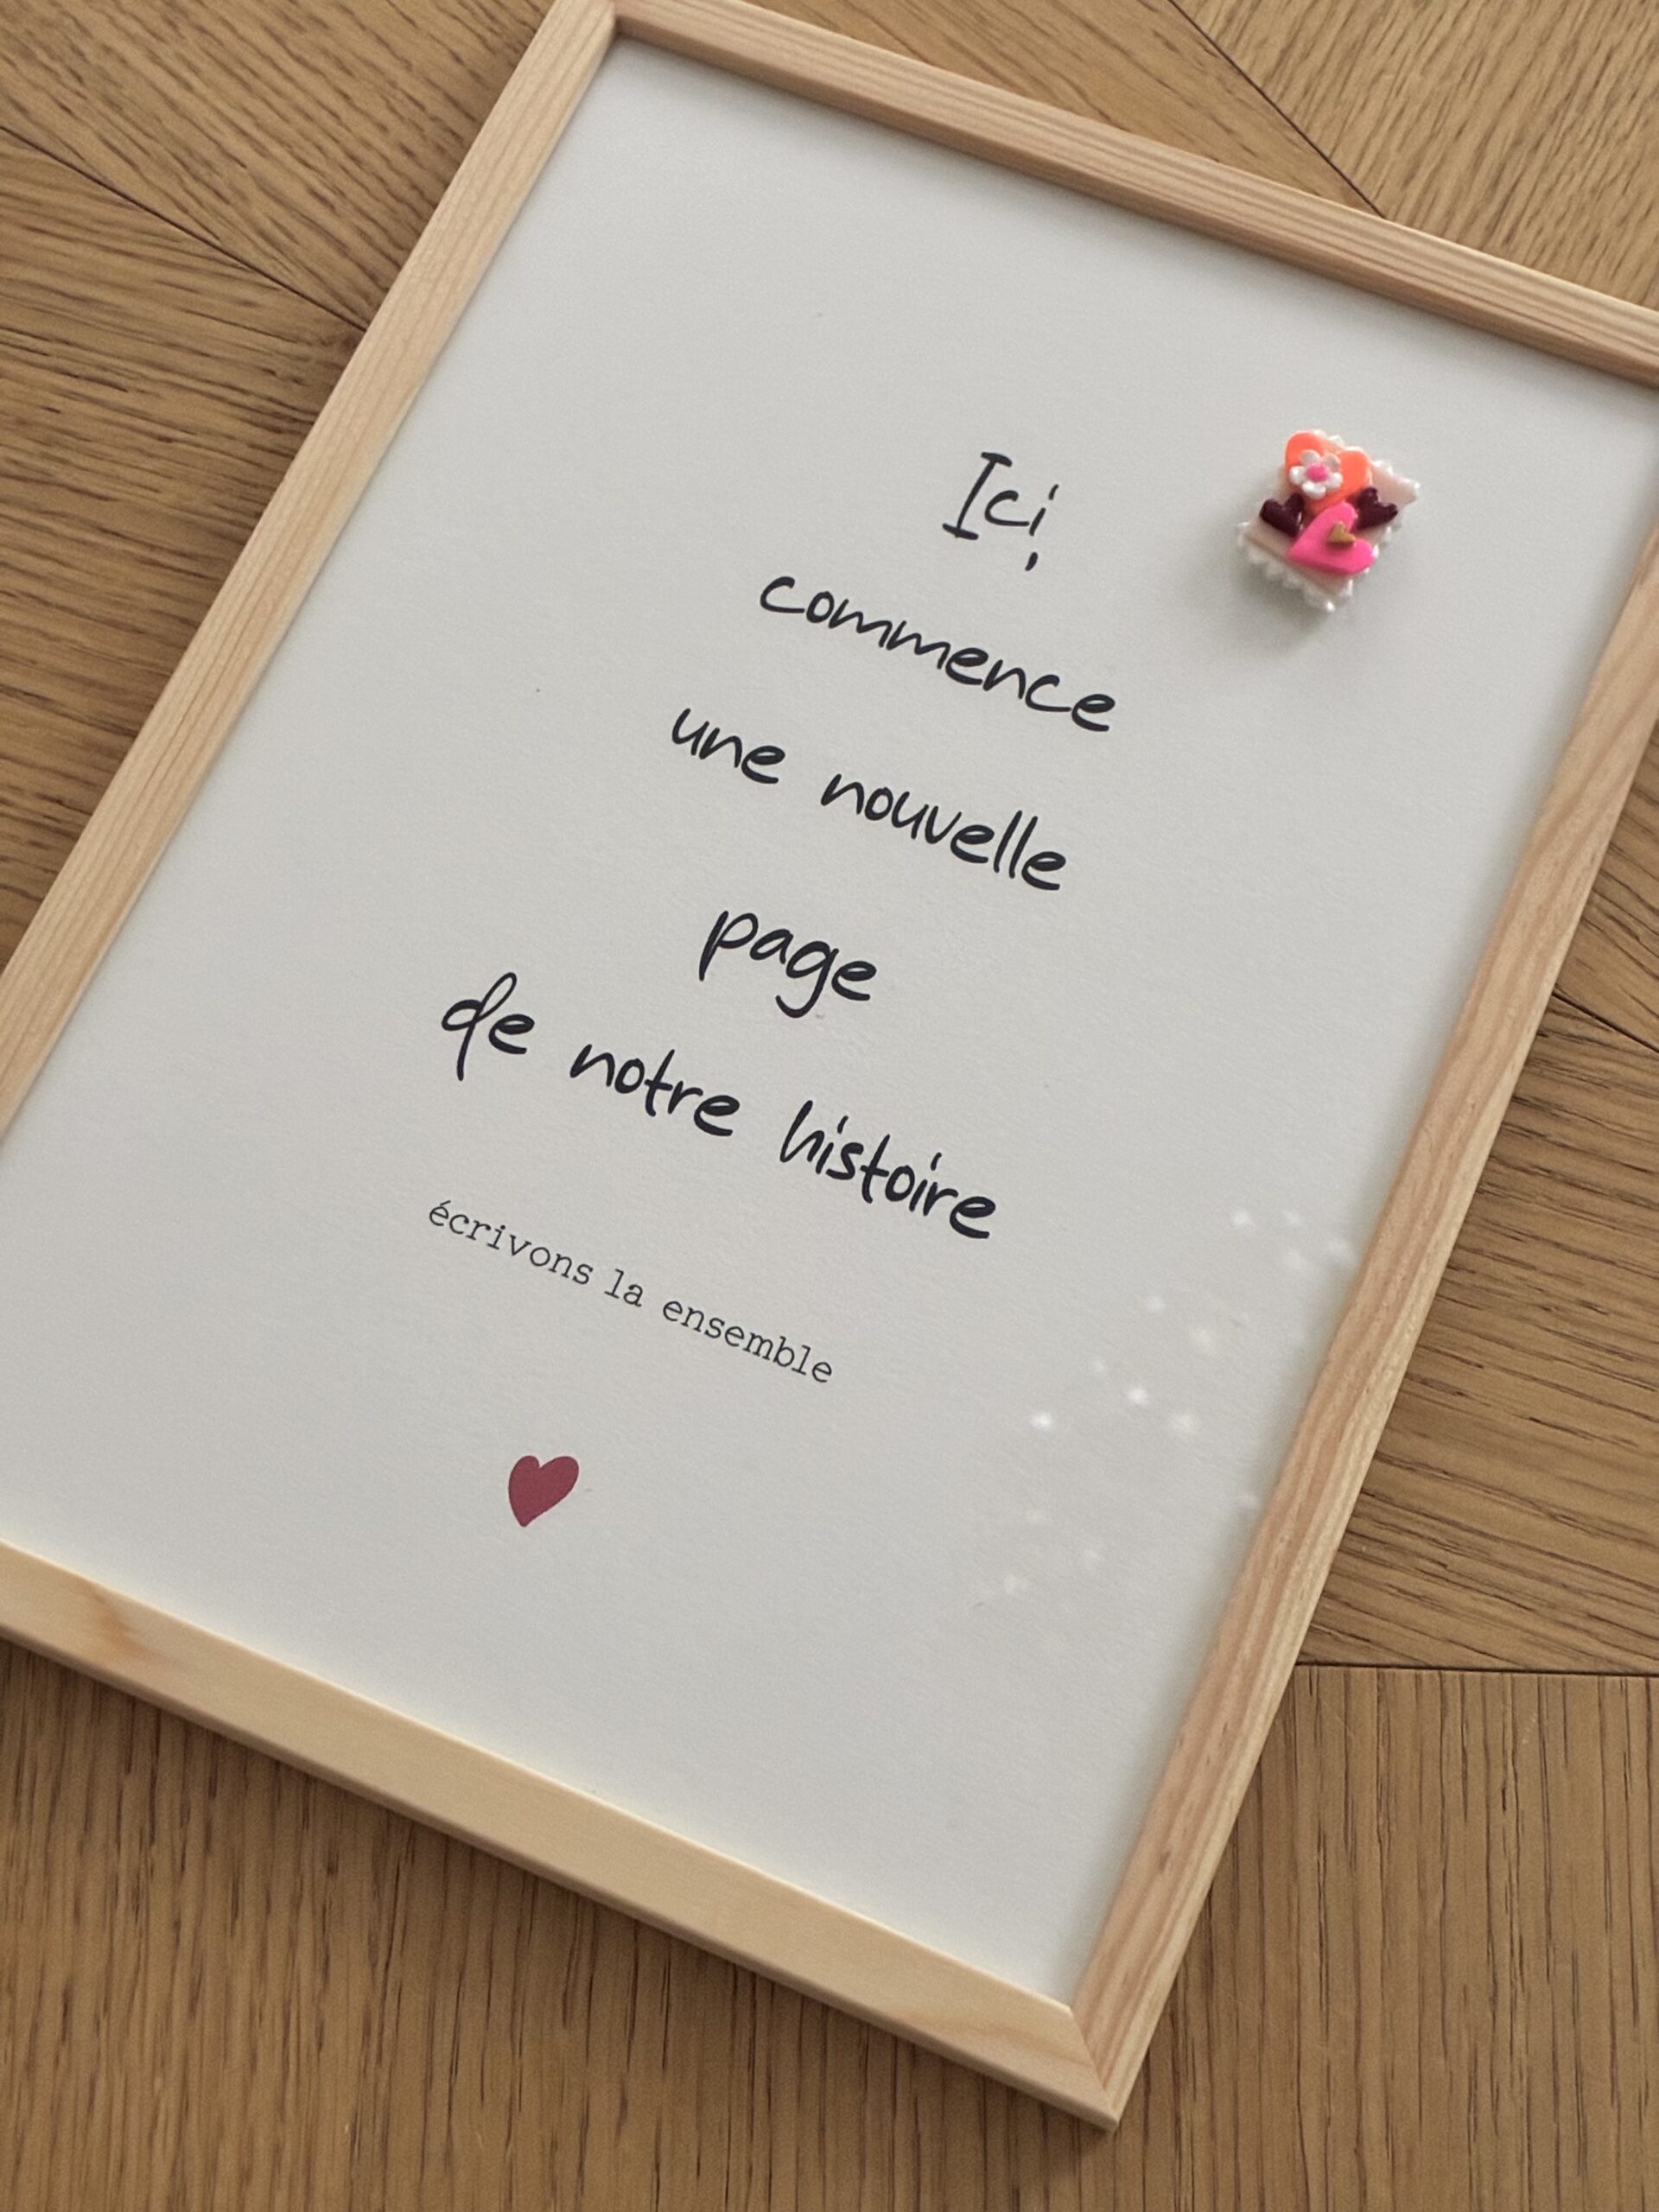 Ici,
commence
une nouvelle
page
de notre histoire
écrivons la ensemble